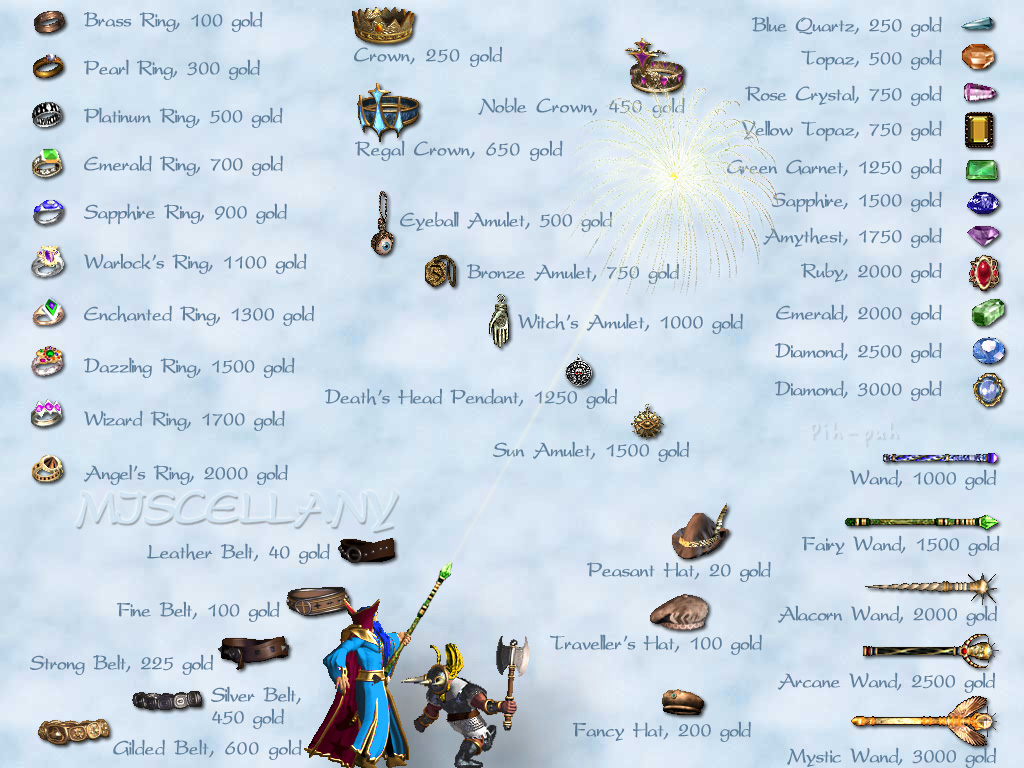 Brass Ring, 100 gold
Pearl Ring, 300 gold
Platinum Ring, 500 gold
Emerald Ring, 700 gold
Sapphire Ring, 900 gold
Warlock's Ring, 1100 gold
Enchanted Ring, 1300 gold
Dazzling Ring, 1500 gold
Wizard Ring, 1700 gold
Angel's Ring, 2000 gold
Crown, 250 gold
Noble Crown, 450 gold
Regal Crown, 650 gold
Eyeball Amulet, 500 gold
Bronze Amulet, 750 gold
Witch's Amulet, 1000 gold
Death's Head Pendant, 1250 gold
Sun Amulet, 1500 gold
Blue Quartz, 250 gold
Topaz, 500 gold
Rose Crystal, 750 gold
Yellow Topaz, 750 gold
Green Garnet, 1250 gold
Sapphire, 1500 gold
Amythest, 1750 gold
Ruby, 2000 gold
Emerald, 2000 gold
Diamond, 2500 gold
Diamond, 3000 gold
Pih-puh
MISCELLANY
Leather Belt, 40 gold
Fine Belt, 100 gold
Strong Belt, 225 gold
Silver Belt,
450 gold
Gilded Belt, 600 gold
Peasant Hat, 20 gold
Traveller's Hat, 100 gold
Fancy Hat, 200 gold
Wand, 1000 gold
Fairy Wand, 1500 gold
Alacorn Wand, 2000 gold
Arcane Wand, 2500 gold
Mystic Wand, 3000 gold